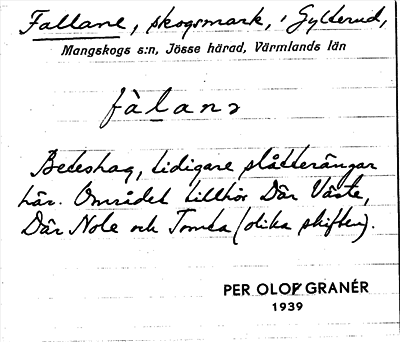 Fallane, skogsmark, i Gylterud,
Mangskogs s:n, Jösse härad, Värmlands län
fàlanɔ
Beteshag, tidigare slåtterängar
här. Området tillhör Där Väste,
Där Nole och Tomta (olika skiften).
PER OLOF GRANÉR
1939